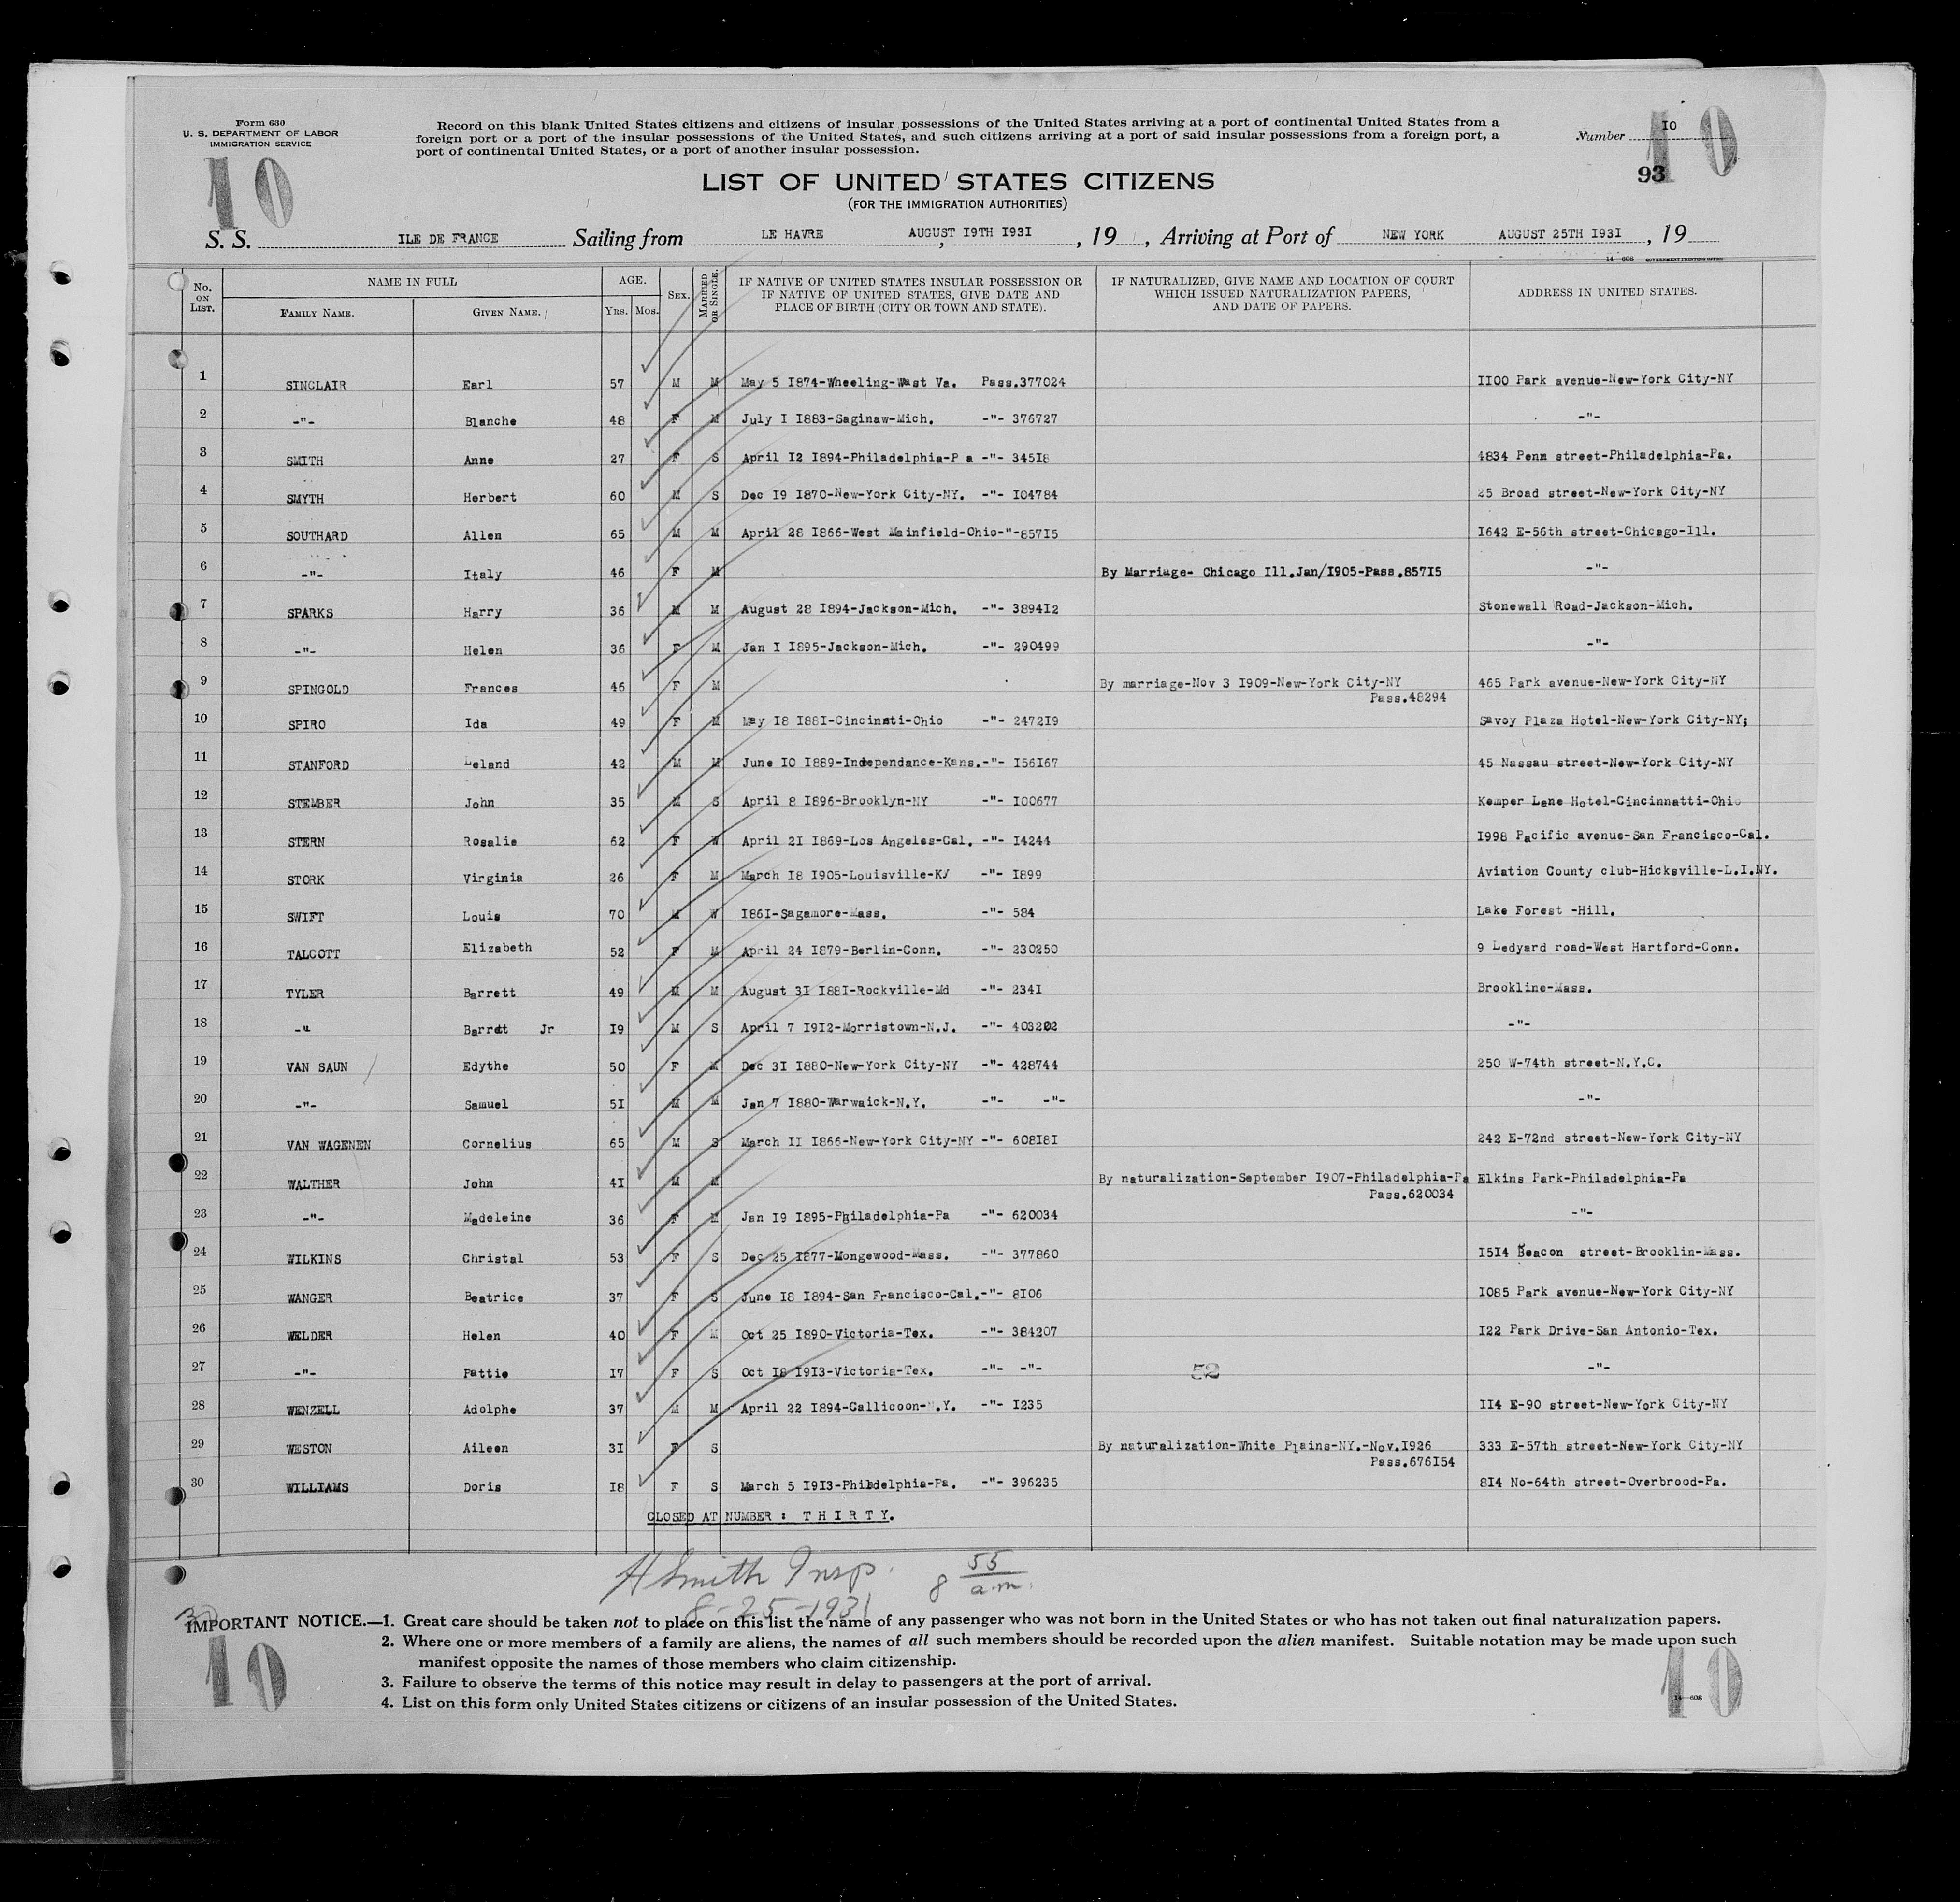 Form 630
U. S. DEPARTMENT OF LABOR
IMMIGRATION SERVICE
10
Record on this blank United States citizens and citizens of insular possessions of the United States arriving at a port of continental United States from a
foreign port or a port of the insular possessions of the United States, and such citizens arriving at a port of said insular possessions from a foreign port, a
port of continental United States, or a port of another insular possession.
Number I0
10
93
LIST OF UNITED STATES CITIZENS
(FOR THE IMMIGRATION AUTHORITIES)
S. S. ILE DE FRANCE Sailing from LE HAVRE AUGUST I9TH I93I , 19 , Arriving at Port of NEW YORK AUGUST 25TH I93I , 19
14—608 GOVERNMENT PRINTING OFFICE
No. ON LIST. NAME IN FULL AGE. SEX. MARRIED OR SINGLE. IF NATIVE OF UNITED STATES INSULAR POSSESSION OR IF NATIVE OF UNITED STATES, GIVE DATE AND PLACE OF BIRTH (CITY OR TOWN AND STATE). IF NATURALIZED, GIVE NAME AND LOCATION OF COURT WHICH ISSUED NATURALIZATION PAPERS, AND DATE OF PAPERS. ADDRESS IN UNITED STATES.
FAMILY NAME. GIVEN NAME. YRS. MOS.
1 SINCLAIR Earl 57 M M May 5 I874-Wheeling-Wast Va. Pass.377024 II00 Park avenue-New-York City-NY
2 -"- Blanche 48 F M July I I883-Saginaw-Mich. -"- 376727 -"-
3 SMITH Anne 27 F S April I2 I894-Philadelphia-P a -"- 345I8 4834 Penn street-Philadelphia-Pa.
4 SMYTH Herbert 60 M S Dec I9 I870-New-York City-NY. -"- I04784 25 Broad street-New-York City-NY
5 SOUTHARD Allen 65 M M April 28 I866-West Mainfield-Ohio-"-857I5 I642 E-56th street-Chicago-Ill.
6 -"- Italy 46 F M By Marriage- Chicago Ill.Jan/I905-Pass.857I5 -"-
7 SPARKS Harry 36 M M August 28 I894-Jackson-Mich. -"- 3894I2 Stonewall Road-Jackson-Mich.
8 -"- Helen 36 F M Jan I I895-Jackson-Mich. -"- 290499 -"-
9 SPINGOLD Frances 46 F M By marriage-Nov 3 I909-New-York City-NY 465 Park avenue-New-York City-NY
Pass.48294
10 SPIRO Ida 49 F M May I8 I88I-Cincinati-Ohio -"- 2472I9 Savoy Plaza Hotel-New-York City-NY;
11 STANFORD Leland 42 M M June I0 I889-Independance-Kans.-"- I56I67 45 Nassau street-New-York City-NY
12 STEMBER John 35 M S April 8 I896-Brooklyn-NY -"- I00677 Kemper Lane Hotel-Cincinnatti-Ohio
13 STERN Rosalie 62 F W April 2I I869-Los Angeles-Cal. -"- I4244 I998 Pacific avenue-San Francisco-Cal.
14 STORK Virginia 26 F M March I8 I905-Louisville-K/ -"- I899 Aviation County club-Hicksville-L.I.NY.
15 SWIFT Louis 70 M W I86I-Sagamore-Mass. -"- 584 Lake Forest -Hill.
16 TALCOTT Elizabeth 52 F M April 24 I879-Berlin-Conn. -"- 230250 9 Ledyard road-West Hartford-Conn.
17 TYLER Barrett 49 M M August 3I I88I-Rockville-Md -"- 234I Brookline-Mass.
18 -" Barrett Jr I9 M S April 7 I9I2-Morristown-N.J. -"- 403202 -"-
19 VAN SAUN Edythe 50 F M Dec 3I I880-New-York City-NY -"- 428744 250 W-74th street-N.Y.C.
20 -"- Samuel 5I M M Jan 7 I880-Warwaick-N.Y. -"- -"- -"-
21 VAN WAGENEN Cornelius 65 M S March II I866-New-York City-NY -"- 608I8I 242 E-72nd street-New-York City-NY
22 WALTHER John 4I M M By naturalization-September I907-Philadelphia-Pa Elkins Park-Philadelphia-Pa
Pass.620034
23 -"- Madeleine 36 F M Jan I9 I895-Philadelphia-Pa -"- 620034 -"-
24 WILKINS Christal 53 F S Dec 25 I877-Mongewood-Mass. -"- 377860 I5I4 Beacon street-Brooklin-Mass.
25 WANGER Beatrice 37 F S June I8 I894-San Francisco-Cal.-"- 8I06 I085 Park avenue-New-York City-NY
26 WELDER Helen 40 F M Oct 25 I890-Victoria-Tex. -"- 384207 I22 Park Drive-San Antonio-Tex.
27 -"- Pattie I7 F S Oct I8 I9I3-Victoria-Tex. -"- -"- 52 -"-
28 WENZELL Adolphe 37 M M April 22 I894-Callicoon-N.Y. -"- I235 II4 E-90 street-New-York City-NY
29 WESTON Aileen 3I F S By naturalization-White Plains-NY.-Nov.I926 333 E-57th street-New-York City-NY
Pass.676I54
30 WILLIAMS Doris I8 F S March 5 I9I3-Philadelphia-Pa. -"- 396235 8I4 No-64th street-Overbrood-Pa.
CLOSED AT NUMBER : T H I R T Y.
H Smith Insp. 8 55/a.m.
8-25-1931
30
IMPORTANT NOTICE.—1. Great care should be taken not to place on this list the name of any passenger who was not born in the United States or who has not taken out final naturalization papers.
2. Where one or more members of a family are aliens, the names of all such members should be recorded upon the alien manifest. Suitable notation may be made upon such
manifest opposite the names of those members who claim citizenship.
3. Failure to observe the terms of this notice may result in delay to passengers at the port of arrival.
4. List on this form only United States citizens or citizens of an insular possession of the United States.
10
10
14—608